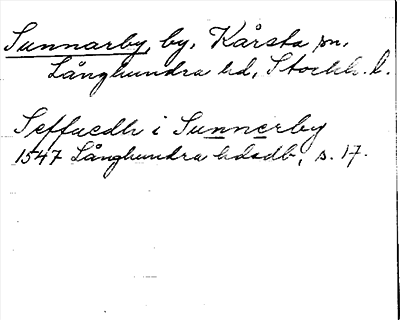 Sunnarby, by, Kårsta sn,
Långhundra hd, Stockh. l.
Seffuedh i Sunnerby
1547 Långhundra hdsdb, s. 17.